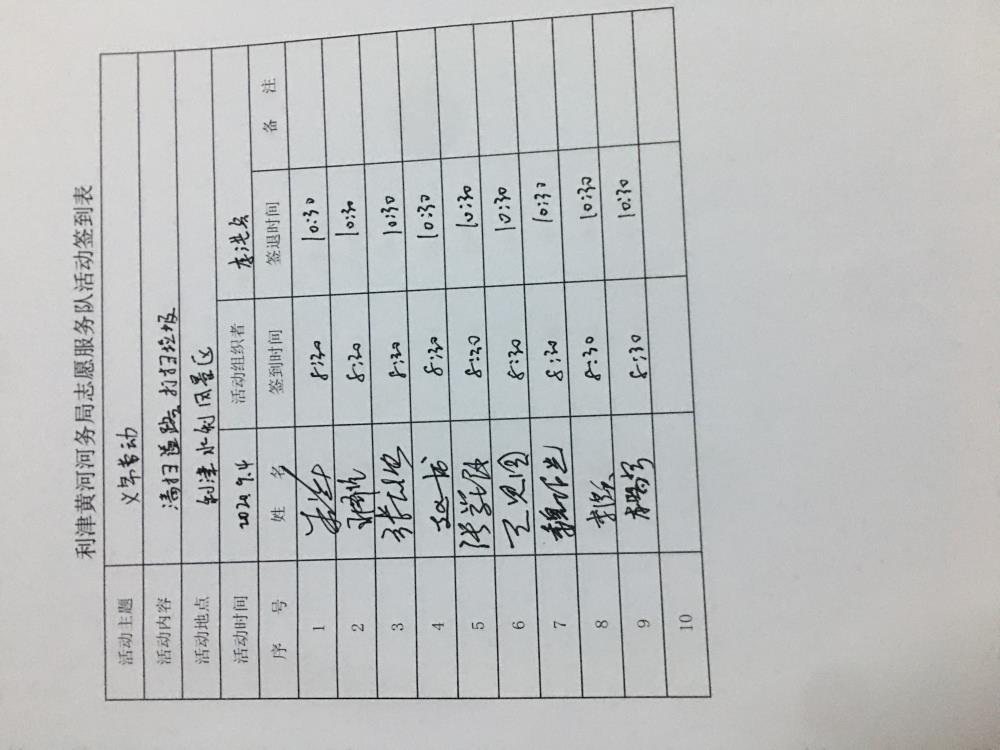 利津黄河河务局志愿服务队活动签到表
活动主题 义务劳动
活动内容 清扫道路 打扫垃圾
活动地点 利津水利风景区
活动时间 2020.9.4 活动组织者
序 号 姓 名 签到时间 签退时间 备 注
1 8:30 10:30
2 8:30 10:30
3 8:30 10:30
4 8:30 10:30
5 8:30 10:30
6 8:30 10:30
7 8:30 10:30
8 8:30 10:30
9 8:30 10:30
10